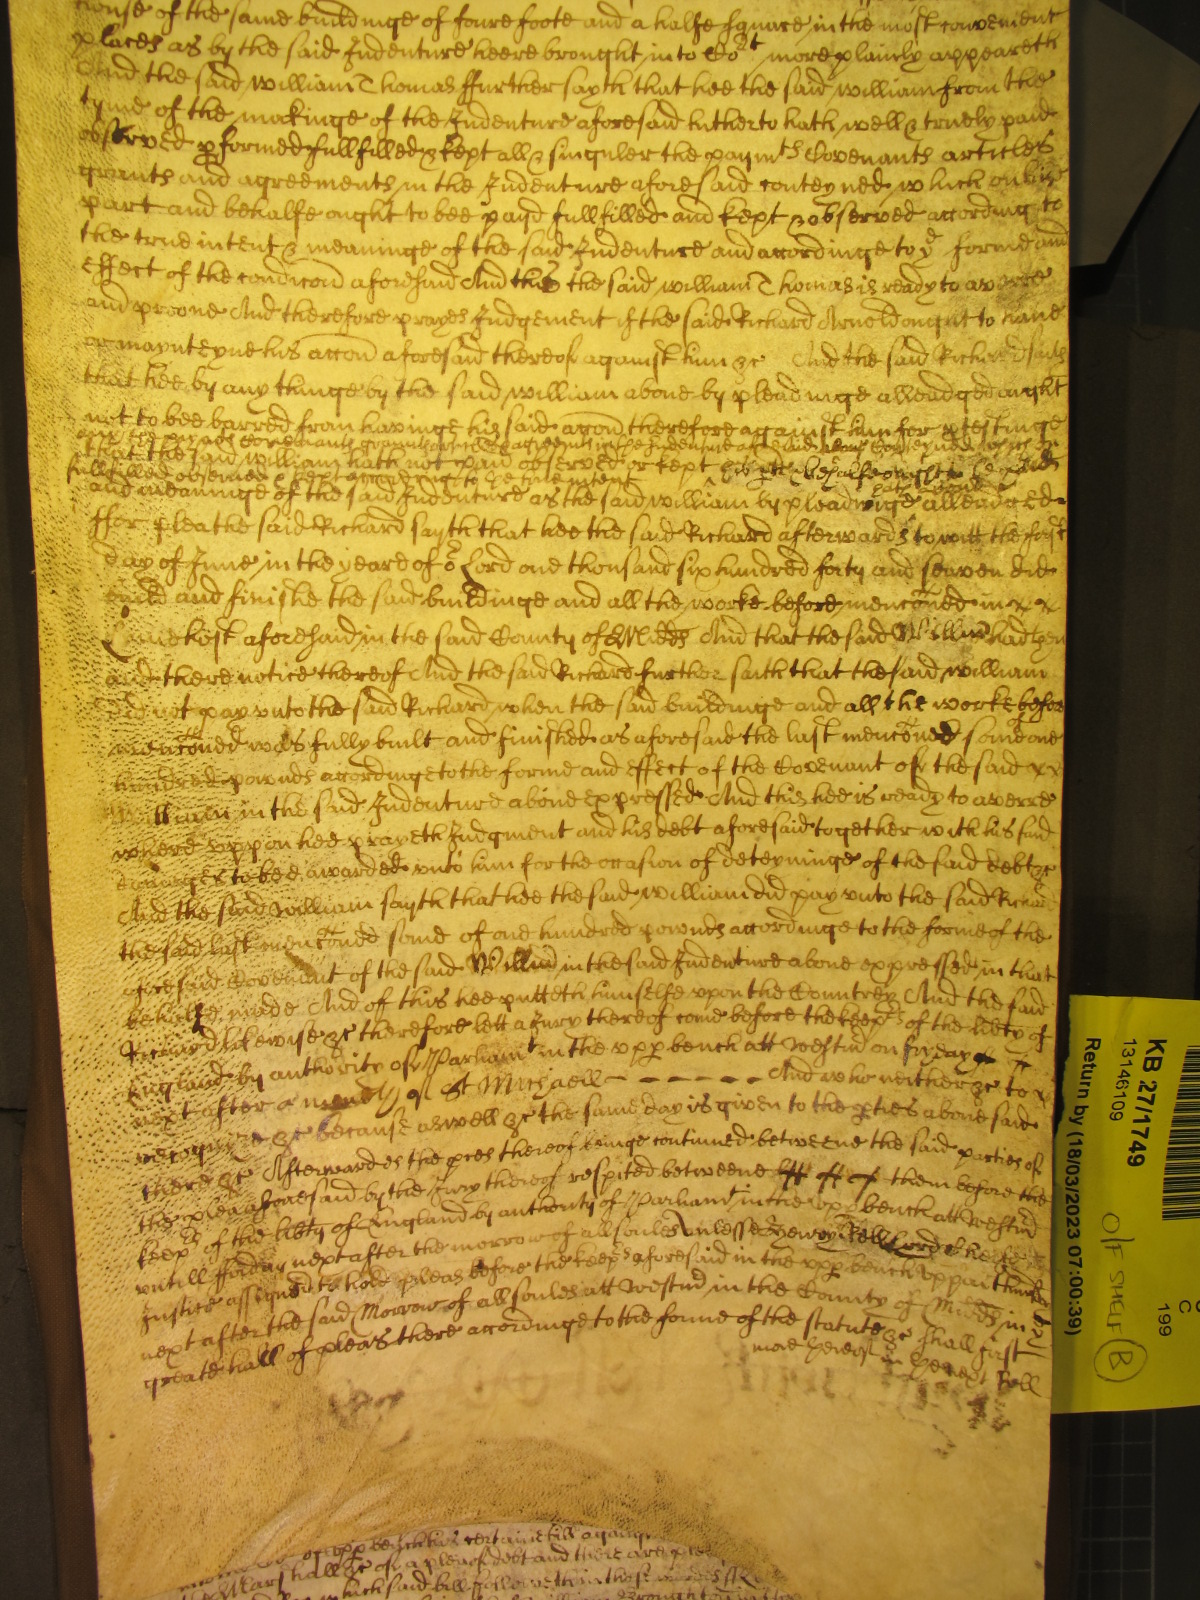 of the same buildinge of foure foote and a halfe square in the most convenient
places as by the said Indenture heere brought into Cort more plainly appeareth
And the said William Thomas ffurther sayth that hee the said William from the
tyme of the makinge of the Indenture aforesaid hitherto hath well & truely paid
observed pformed fullfilled & kept all & singuler the paymts Covenants articles
grants and agreements in the Indenture aforesaid conteyned which on his
part and behalfe ought to bee payd fullfilled and kept & observed according to
the true intent & meaninge of the said Indenture and accordinge to ye forme and
effect of the condicon aforesaid And this the said William Thomas is ready to averre
and proove And therefore prayes Judgement if the said Richard Arnold ought to have
or maynteyne his accon aforesaid thereof against him &c And the said Richard saith
that hee by any thinge by the said William above by pleadinge alleadged ought
not to bee barred from havinge his said accon therefore against him for ptestinge
covenants graunts articles & agreements in the Indenture aforesaid above conteyned which on
that the said William hath not paid observed or kept his pte & behalfe ought to be paid
fullfilled observed & kept according to the true intent
and meaninge of the said Indenture as the said William by pleadinge hath alleadged
ffor plea the said Richard sayth that hee the said Richard afterwards to witt the first
day of June in the yeare of or Lord one thousand six hundred forty and seaven did
build and finishe the said buildinge and all the worke before menconed in
aforesaid in the said County of Midds And that the said William had then
and there notice thereof And the said Richard further saith that the said William
did not pay unto the said Richard when the said buildinge and all the worke before
menconed was fully built and finished as aforesaid the last menconed some of one
hundred pownds accordinge to the forme and effect of the Covenant of the said
William in the said Indenture above expressed And this hee is ready to averre
where uppon hee prayeth Judgment and his debt aforesaid together with his said
damages to bee awarded unto him for the occasion of deteyninge of the said debt &c
And the said William sayth that hee the said William did pay unto the said Richard
the said last menconed some of one hundred pownds accordinge to the forme of the
aforesaid Covenant of the said William in the said Indenture above expressed in that
behalfe made And of this hee putteth himselfe upon the Countrey And the said
Richard likewise &c therefore lett a Jury thereof come before the keeps of the libty of
England by authority of Parliamt in the upp bench att Westm on fryday
next after a moneth of St Michaell - - - - - - And who neither &c to
recognize &c because aswell &c the same day is given to the pties abovesaid
there &c Afterwards the pces thereof beinge continued betweene the said parties of
the plea aforesaid by the Jury thereof respited betweene them before the
keeps of the libty of England by authority of Parliamt in the upp bench att Westm
untill ffriday next after the morrow of all soules unlesse Henry Rolle Lord
Justice assigned to hold pleas before the keeps aforesaid in the upp bench uppon thursday
next after the said Morrow of all soules att Westm in the County of Midds in ye
greate hall of pleas there accordinge to the forme of the statute &c shall first
more hereof in the next Roll
upp bench his certaine bill against
Marshall &c of a plea of debt and there are
which said bill followeth in these words
KB 27/1749
13146109
Return by (18/03/2023 07:00:39)
O/F SHELF
B
C
199